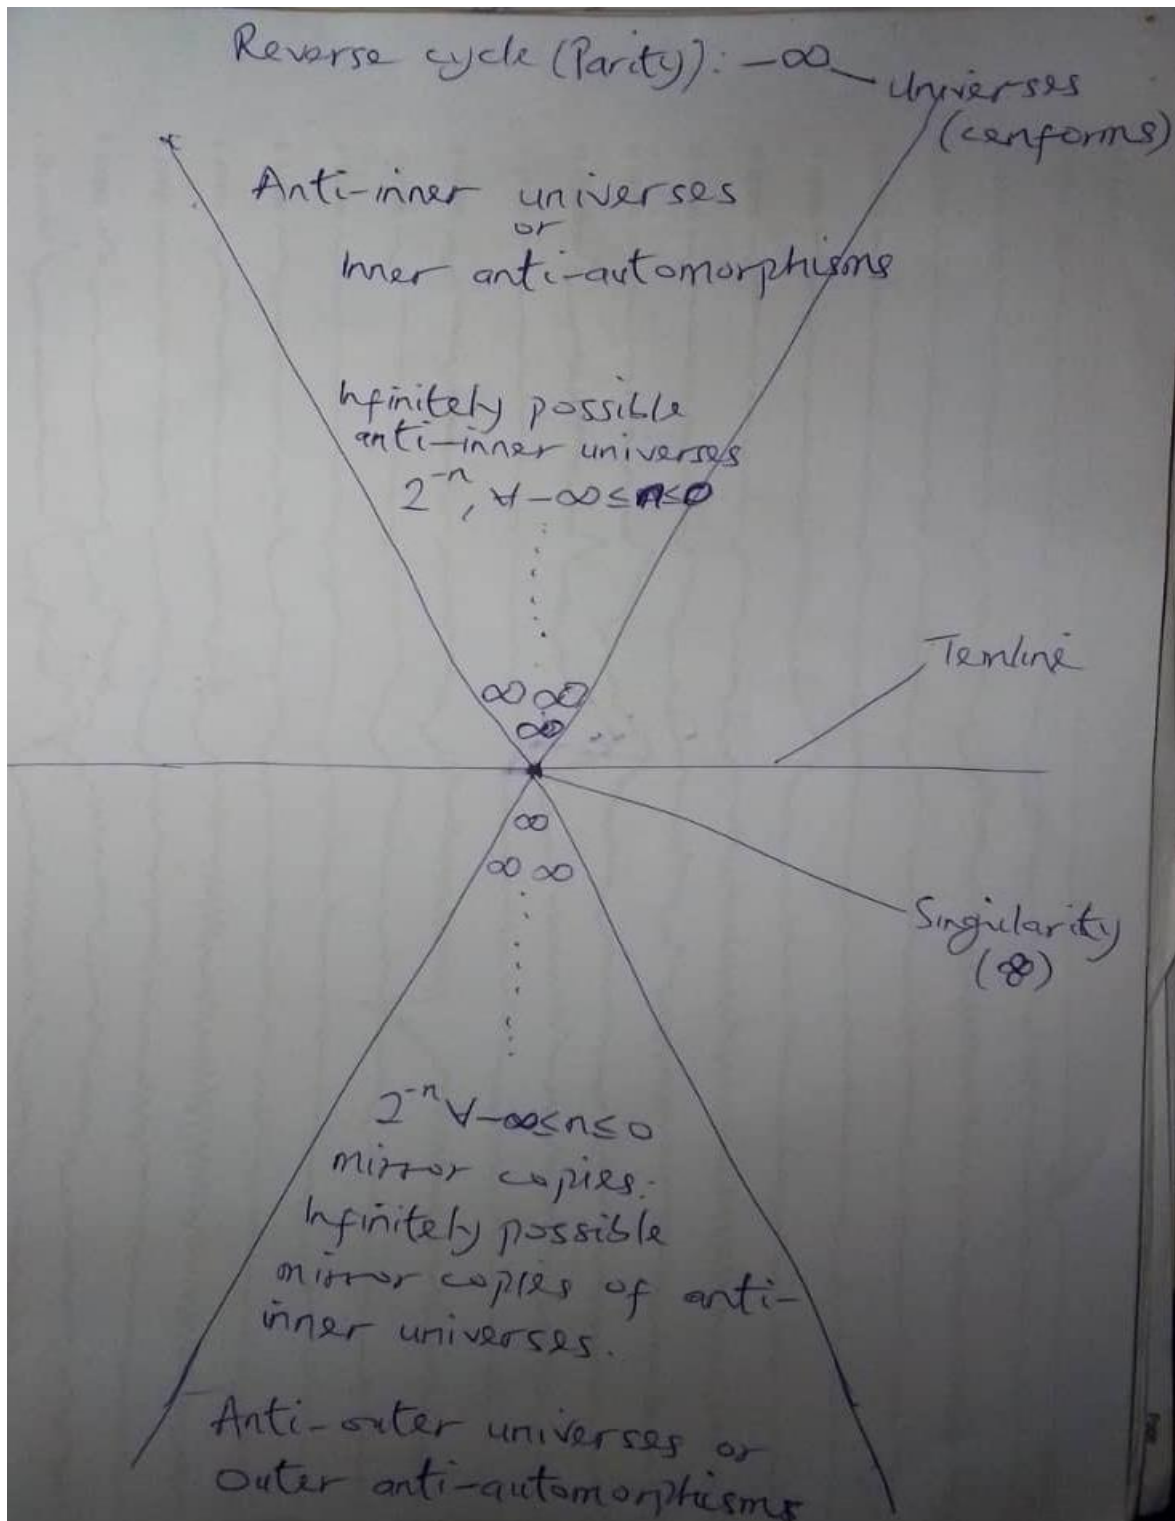 Reverse cycle (Parity): -∞
Universes
(cenforms)
Anti-inner universes
or
Inner anti-automorphisms
Infinitely possible
anti-inner universes
2⁻ⁿ, ∀ -∞ ≤ n ≤ 0
Temline
∞ ∞
∞
∞
∞ ∞
Singularity
(∞)
2⁻ⁿ ∀ -∞ ≤ n ≤ 0
mirror copies.
Infinitely possible
mirror copies of anti-
inner universes.
Anti-outer universes or
outer anti-automorphisms